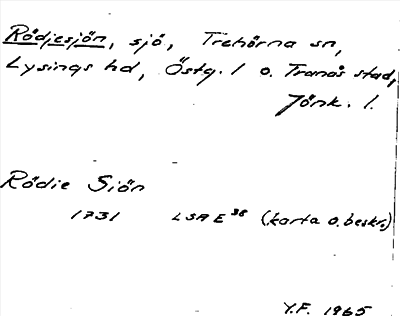 Rödjesjön, sjö, Trehörna sn,
Lysings hd, Östg. l o. Tranås stad,
Jönk. l.
Rödie Siön
1731 LSA E 38 (karta o. beskr.)
Y.F. 1965